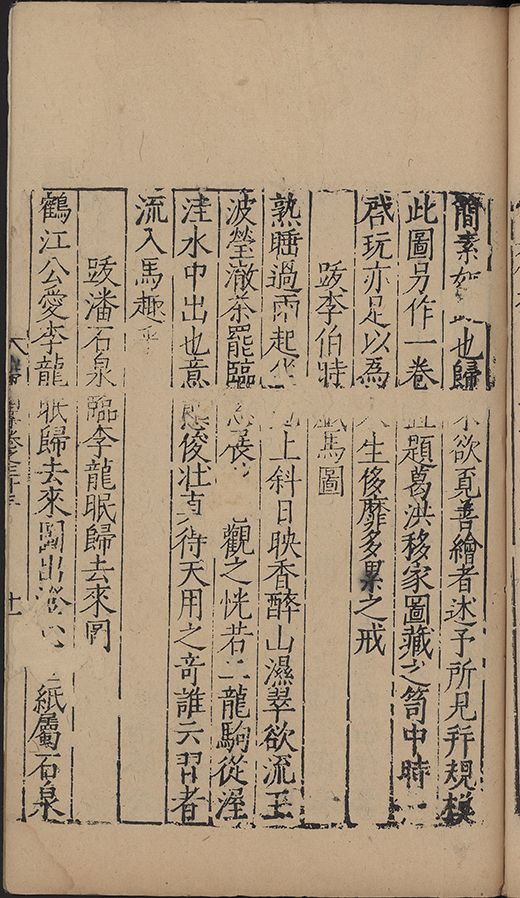 簡素如此也歸不欲覓善繪者述予所見幷規模
此圖另作一卷並題葛洪移家圖藏之笥中時一
啓玩亦足以為人生侈靡多累之戒
跋李伯時戲馬圖
熟睡過雨起坐池上斜日映香醉山濕翠欲流玉
波瑩澈茶罷臨觀之恍若二龍駒從渥
洼水中出也意態俊壯真待天用之奇誰云習者
流入馬趣乎
跋潘石泉臨李龍眠歸去來圖
鶴江公愛李龍眠歸去來圖出紙屬石泉
十一